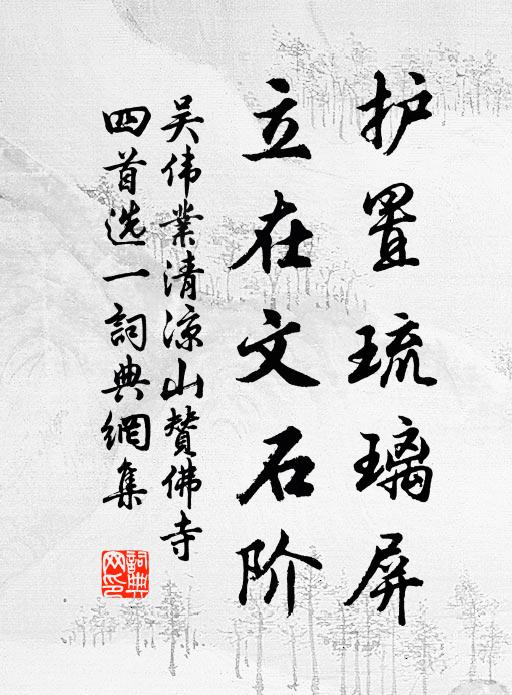 护置琉璃屏
立在文石阶
吴伟業清凉山贊佛寺
四首选一詞典網集
詞典网印